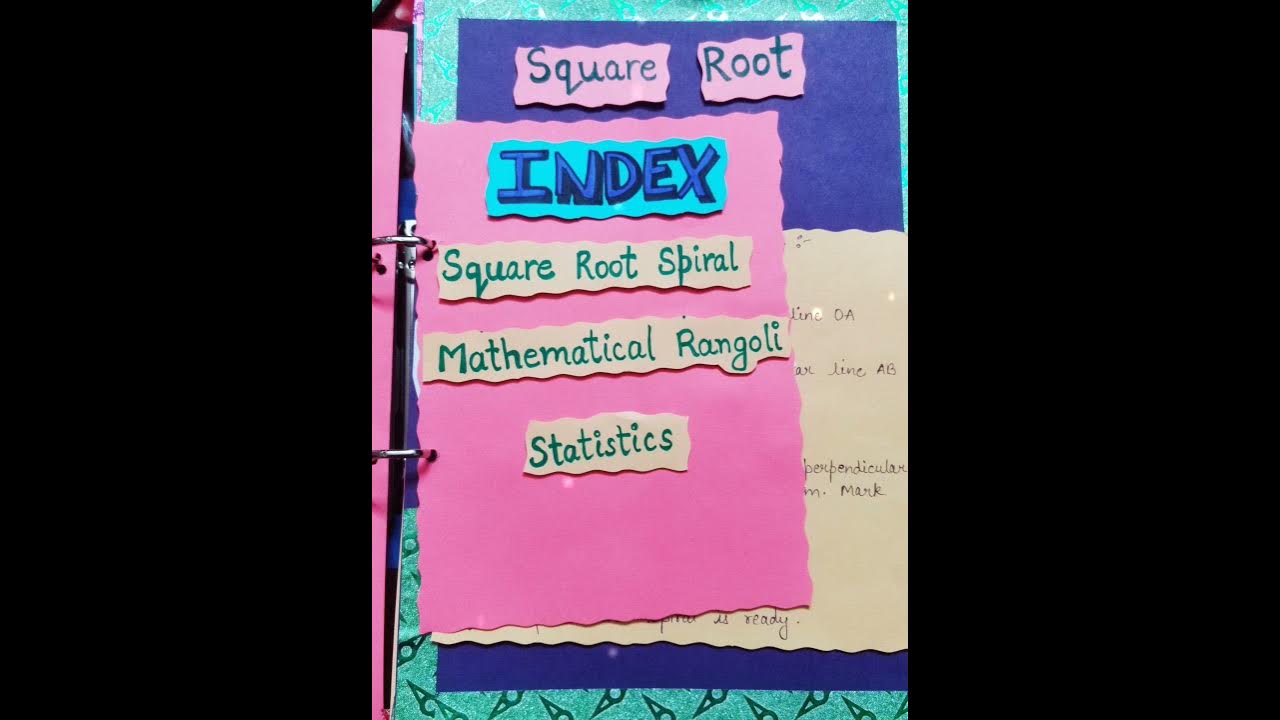 Square Root
INDEX
Square Root Spiral
Mathematical Rangoli
Statistics
:-
line OA
line AB
perpendicular
m. Mark
is ready.